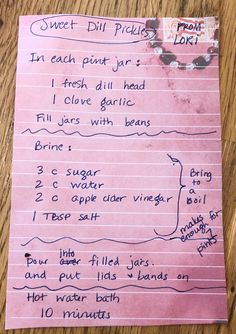 Sweet Dill Pickles
FROM
LORI
In each pint jar:
1 fresh dill head
1 clove garlic
Fill jars with beans
Brine:
3 c sugar
2 c water
2 c apple cider vinegar
1 TBSP salt
Bring
to
a
boil
makes
enough for
7
pints
Pour into filled jars.
and put lids + bands on
Hot water bath
10 minutes